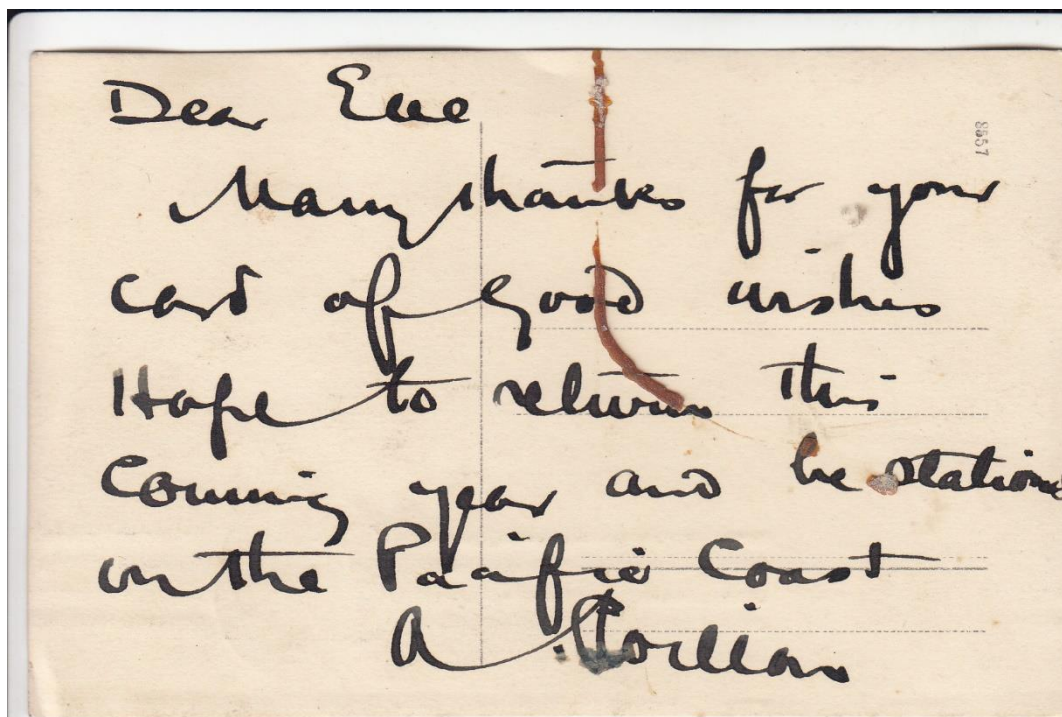 Dear Eve
8557
Many thanks for your
card of good wishes
Hope to return this
Coming year and be station
on the Pacific Coast
A.